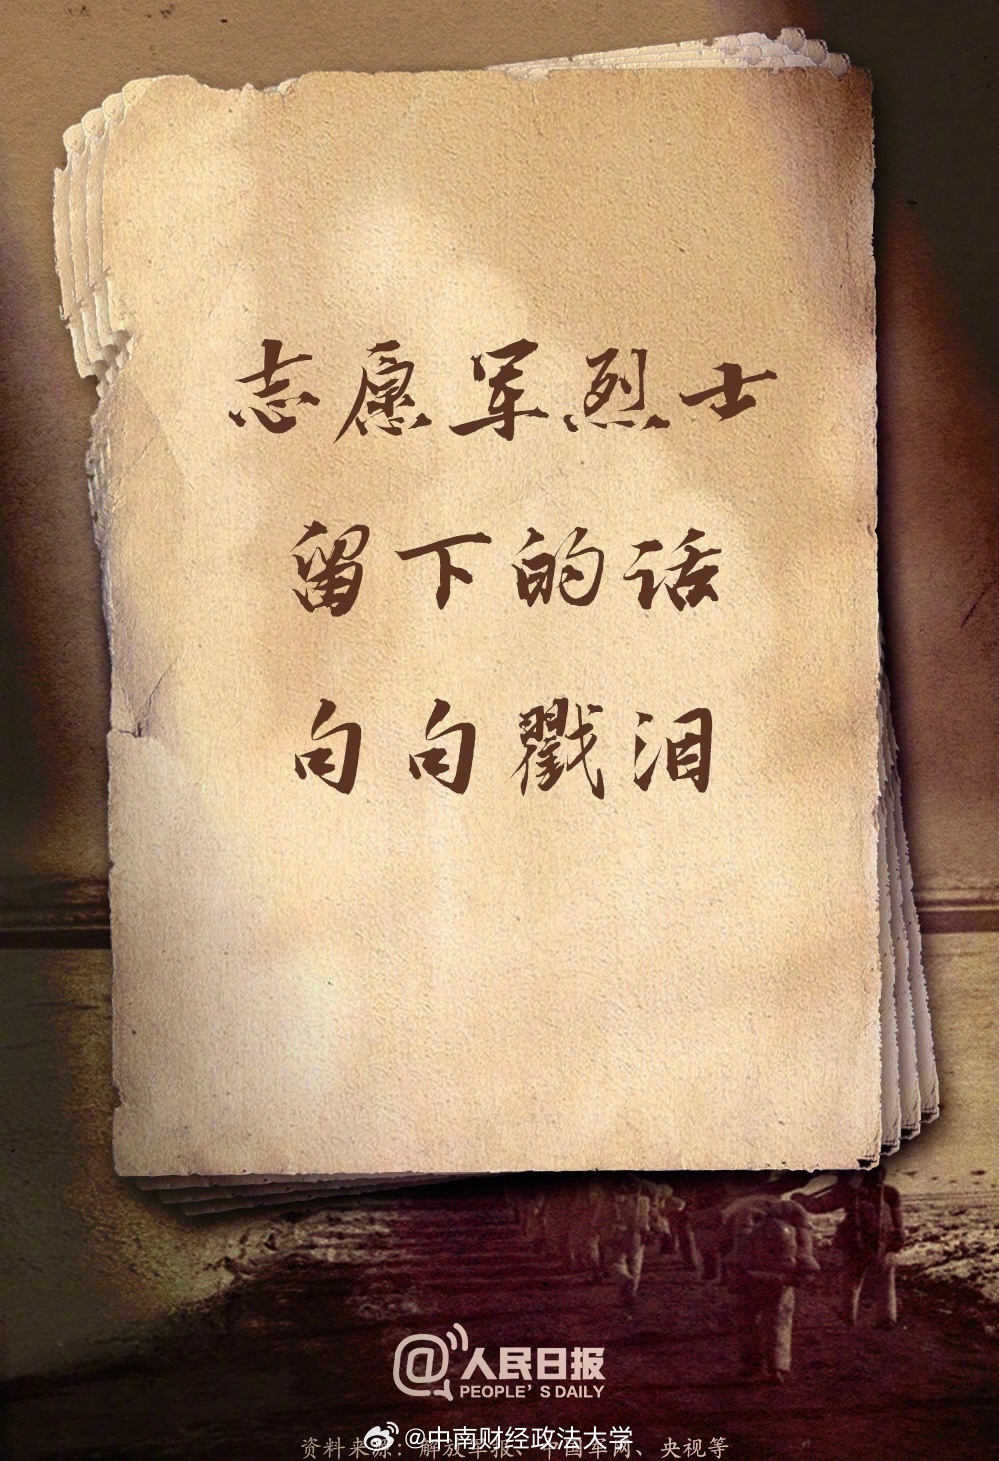 志愿军烈士
留下的话
句句戳泪
@人民日报
PEOPLE'S DAILY
@中南财经政法大学
资料来源：解放军报、中国军网、央视等